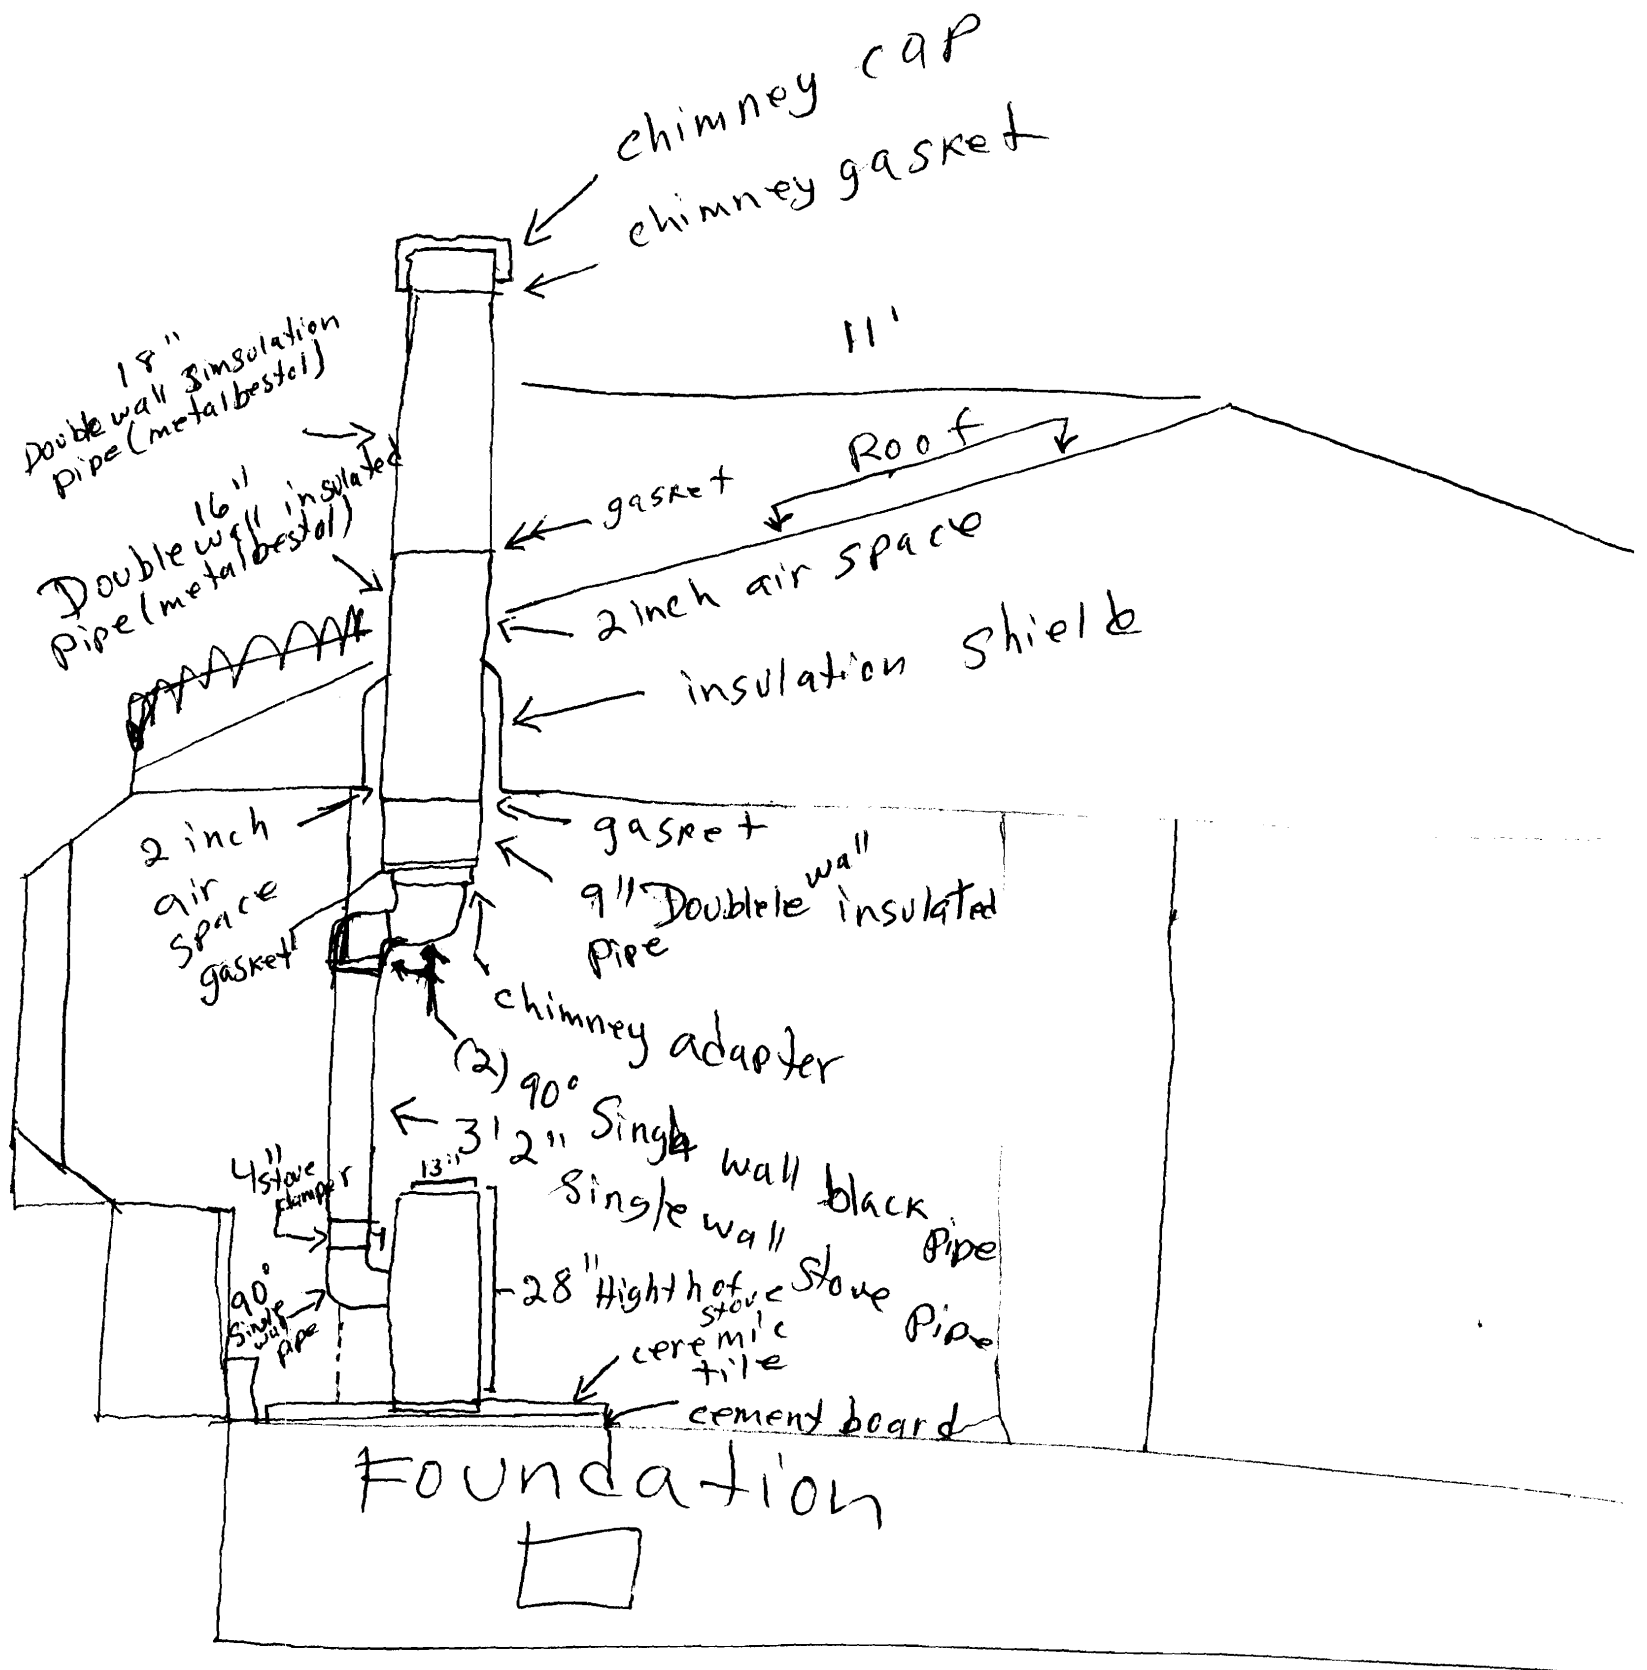 chimney cap
chimney gasket
11'
18"
Double wall insulation
pipe (metalbestol)
16"
Double wall insulated
pipe (metalbestol)
Roof
gasket
2 inch air space
insulation shield
2 inch
air
space
gasket
gasket
9" Doublele wall insulated
pipe
chimney adapter
(2) 90° Single wall black pipe
3' 2" Single wall stove pipe
13"
4" stove
damper
90°
Single
wall
pipe
28" Highth of
stove
ceremic
tile
cement board
Foundation